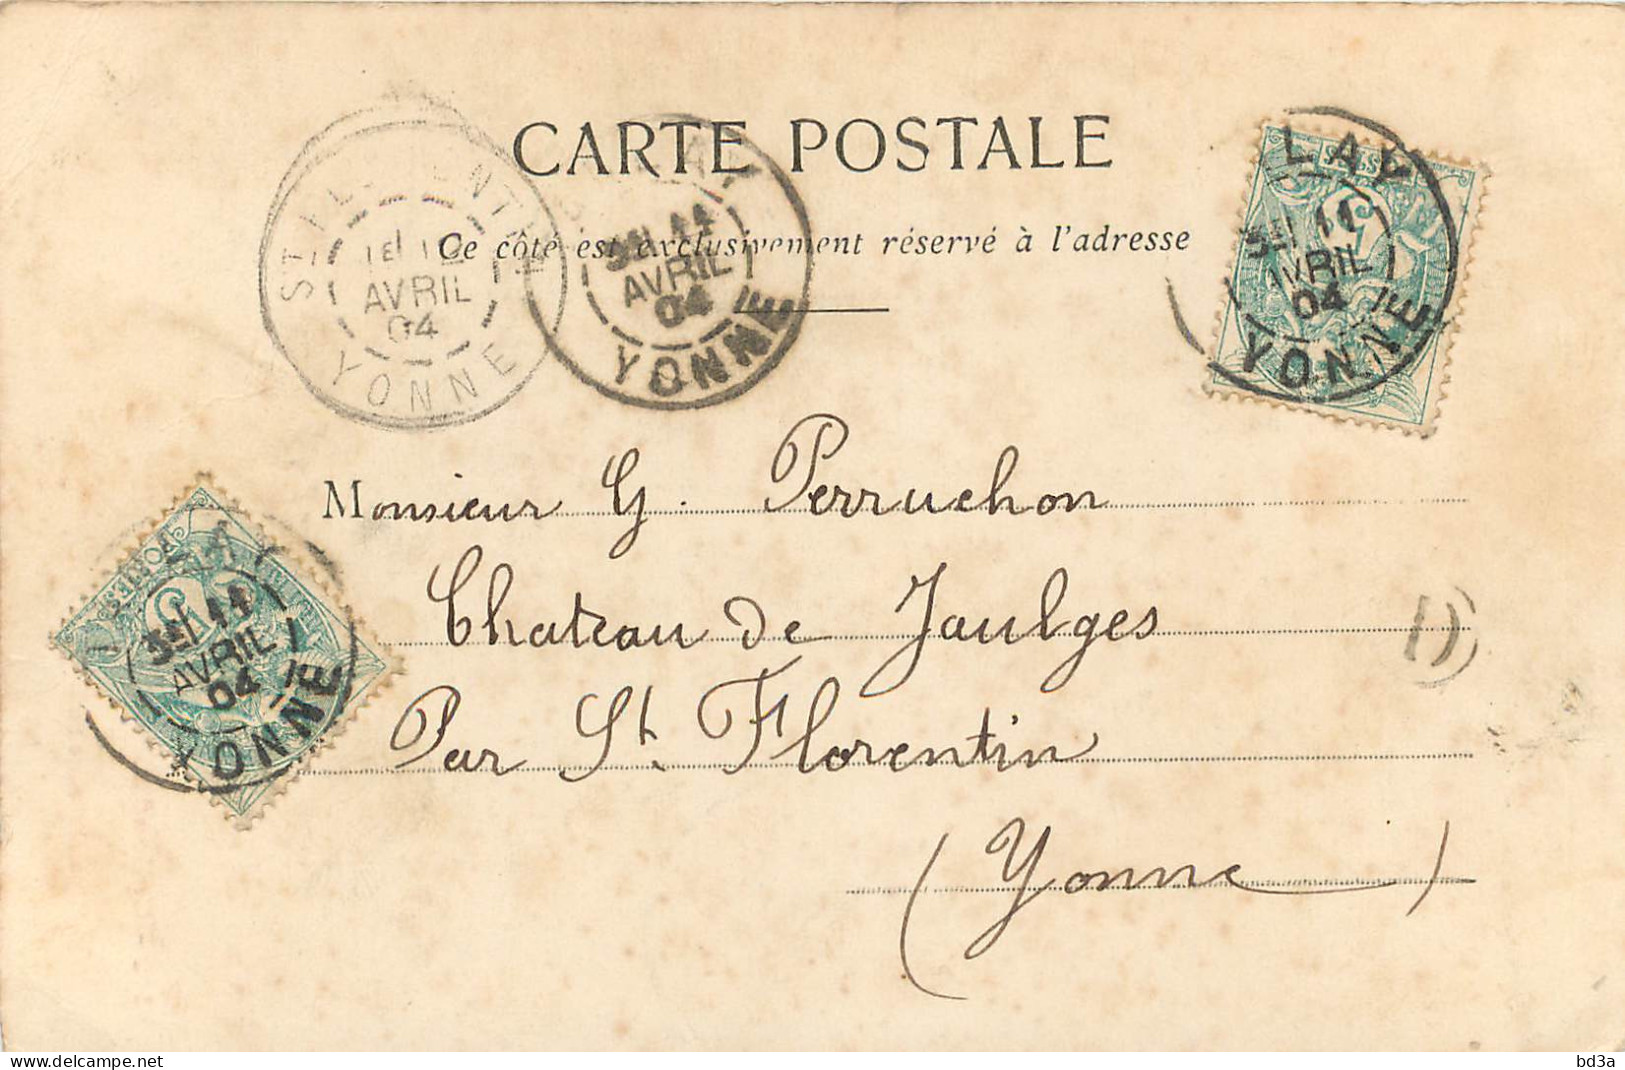 CARTE POSTALE
Ce côté est exclusivement réservé à l'adresse
AVRIL
04
YONNE
AVRIL
04
YONNE
LAY
11
AVRIL
04
YONNE
Monsieur G. Perruchon
Chateau de Jaulges
Par St. Florentin
(Yonne)
POSTES
11
AVRIL
04
YONNE
www.delcampe.net
bd3a